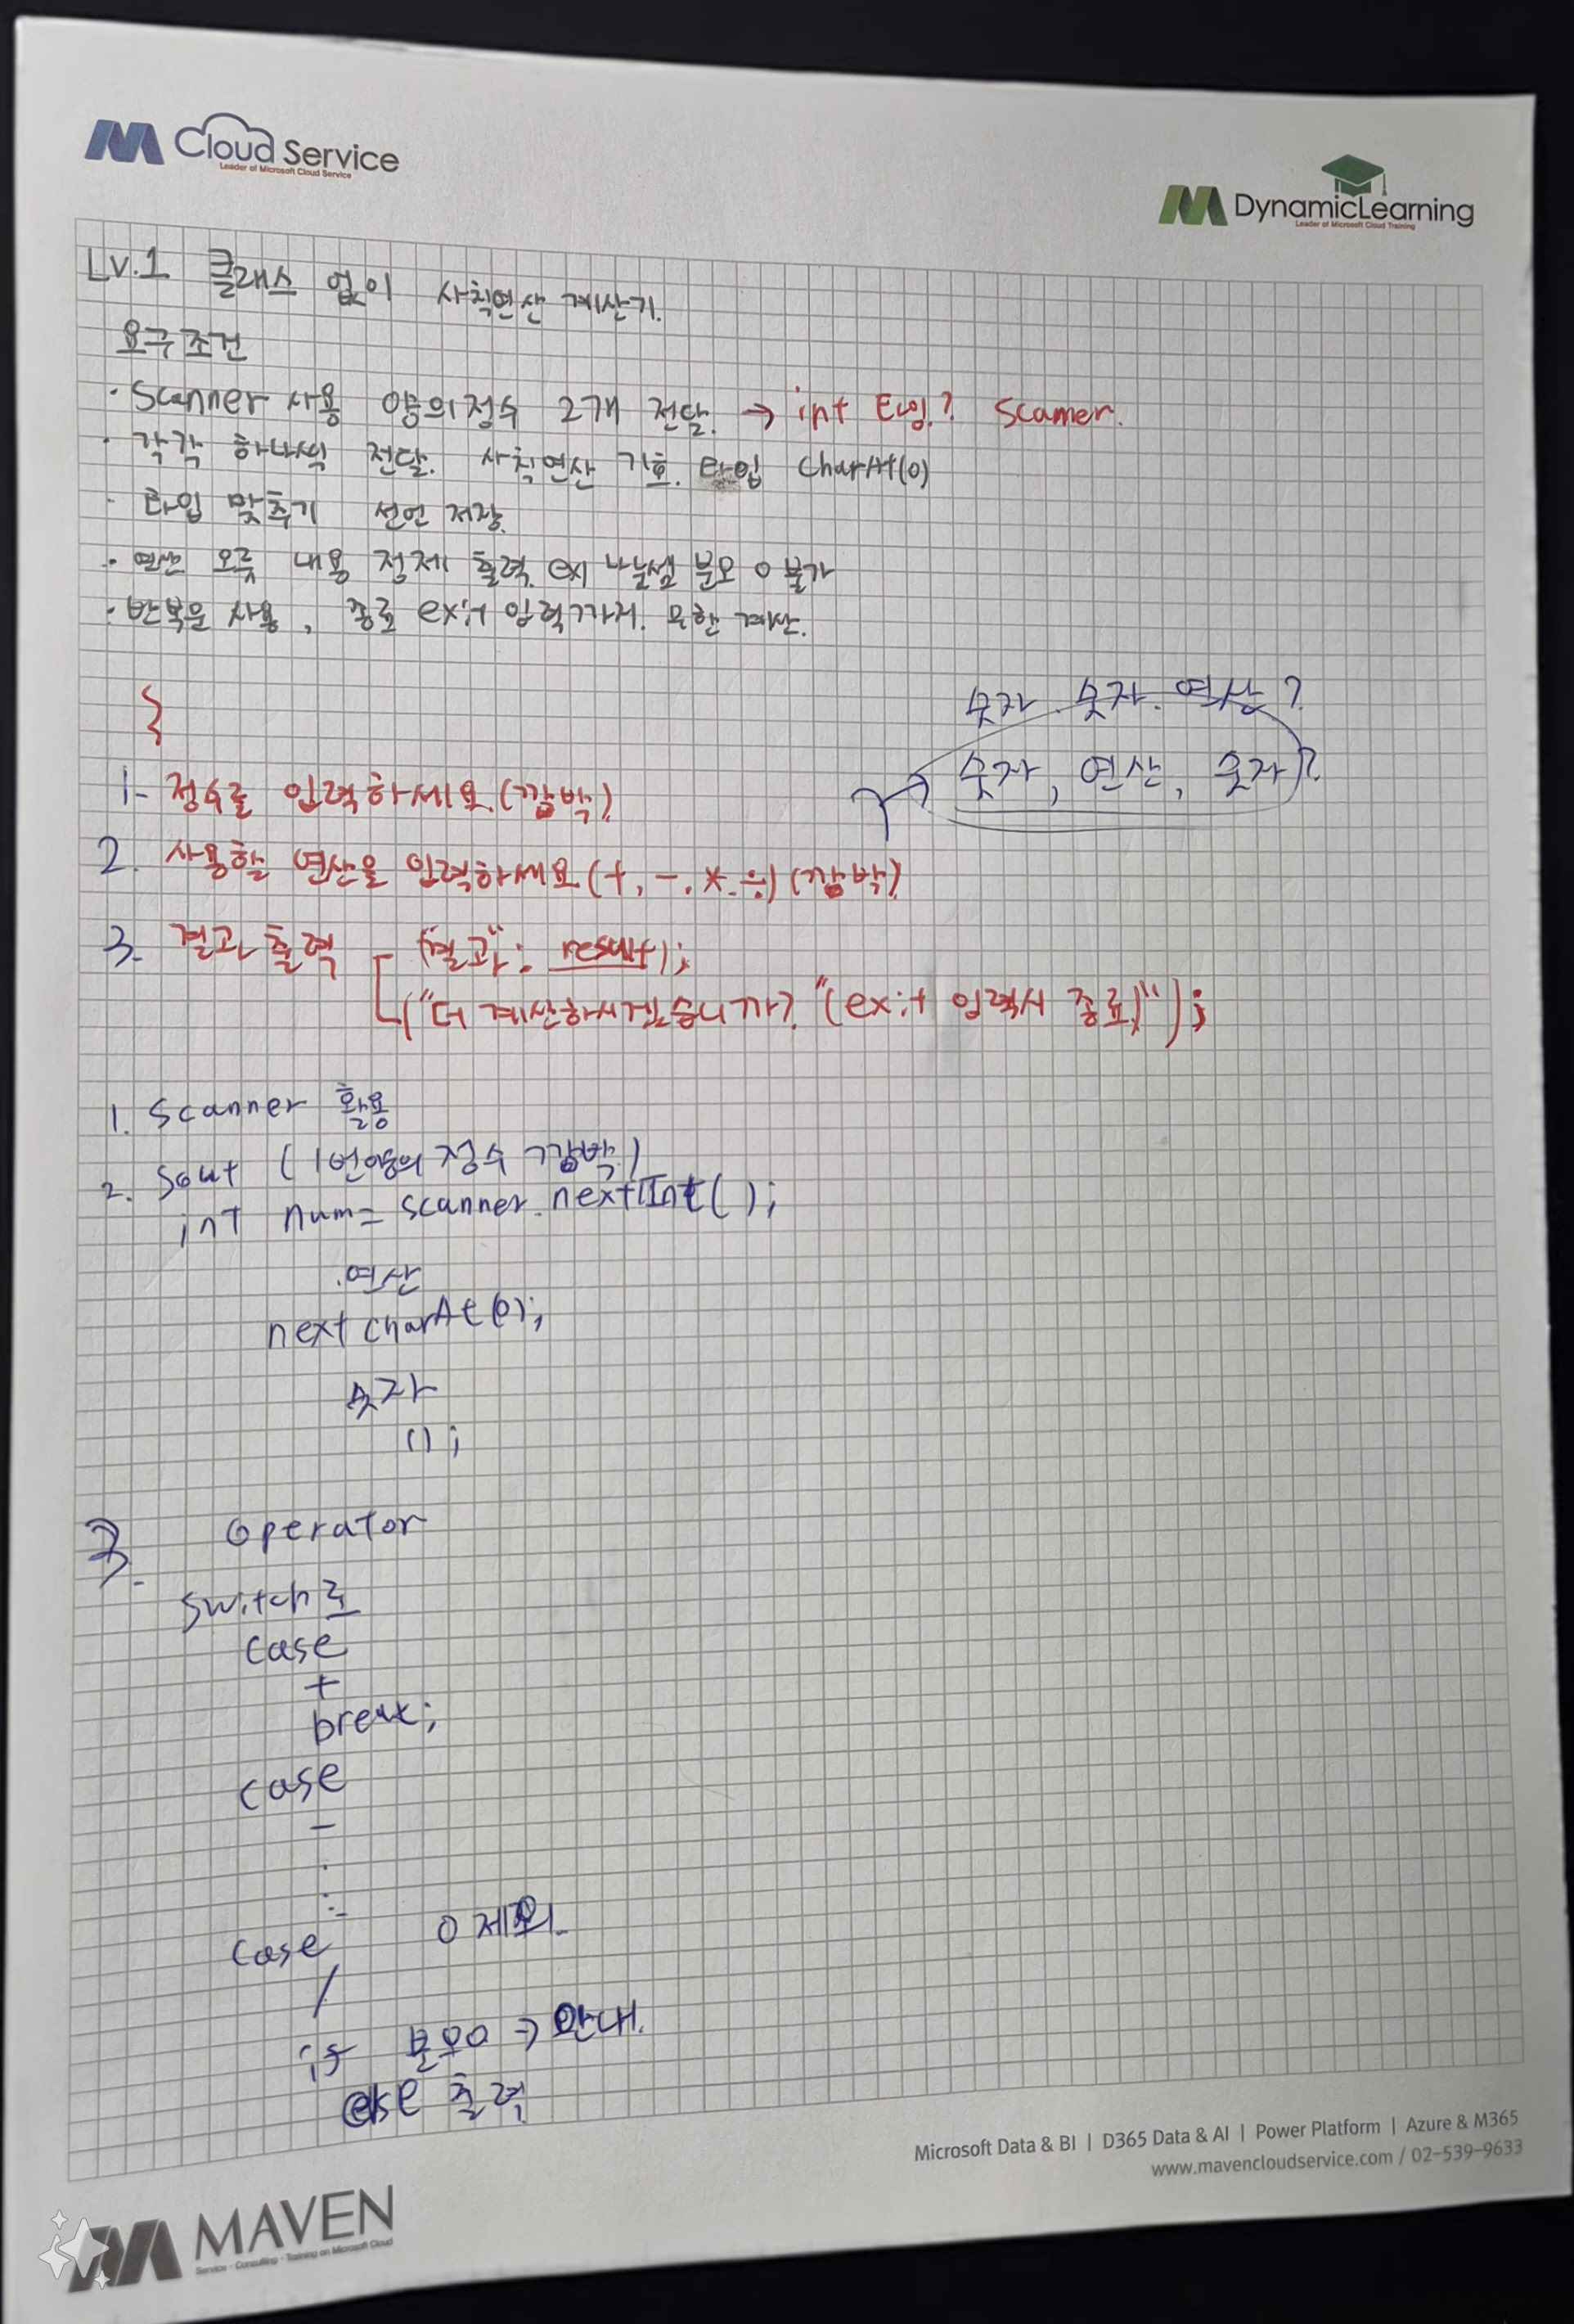 Cloud Service
Leader of Microsoft Cloud Service
DynamicLearning
Leader of Microsoft Cloud Training
Lv.1 클래스 없이 사칙연산 계산기.
요구조건
· Scanner 사용 양의정수 2개 전달. → int 타입? Scanner.
· 각각 하나씩 전달. 사칙연산 기호. 타입 charAt(0)
· 타입 맞추기 선언 저장.
· 연산 오류 내용 정제 출력. ex) 나눗셈 분모 0 불가
· 반복문 사용, 종료 exit 입력까지. 무한 계산.
숫자. 숫자. 연산?
→ 숫자, 연산, 숫자?
1- 정수를 입력하세요.(깜박)
2. 사용할 연산을 입력하세요(+, -, *, ÷) (깜박)
3. 결과 출력 - ("결과": result);
("더 계산하시겠습니까? "(exit 입력시 종료)");
1. Scanner 활용
2. Sout (1번양의 정수 깜박)
int num= scanner.nextInt( );
.연산
next charAt(0);
숫자
();
3. operator
switch로
case
+
break;
case
-
:
case 0 제외
/
if 분모0 → 안내.
else 출력
Microsoft Data & BI | D365 Data & AI | Power Platform | Azure & M365
www.mavencloudservice.com / 02-539-9633
MAVEN
Service - Consulting - Training on Microsoft Cloud